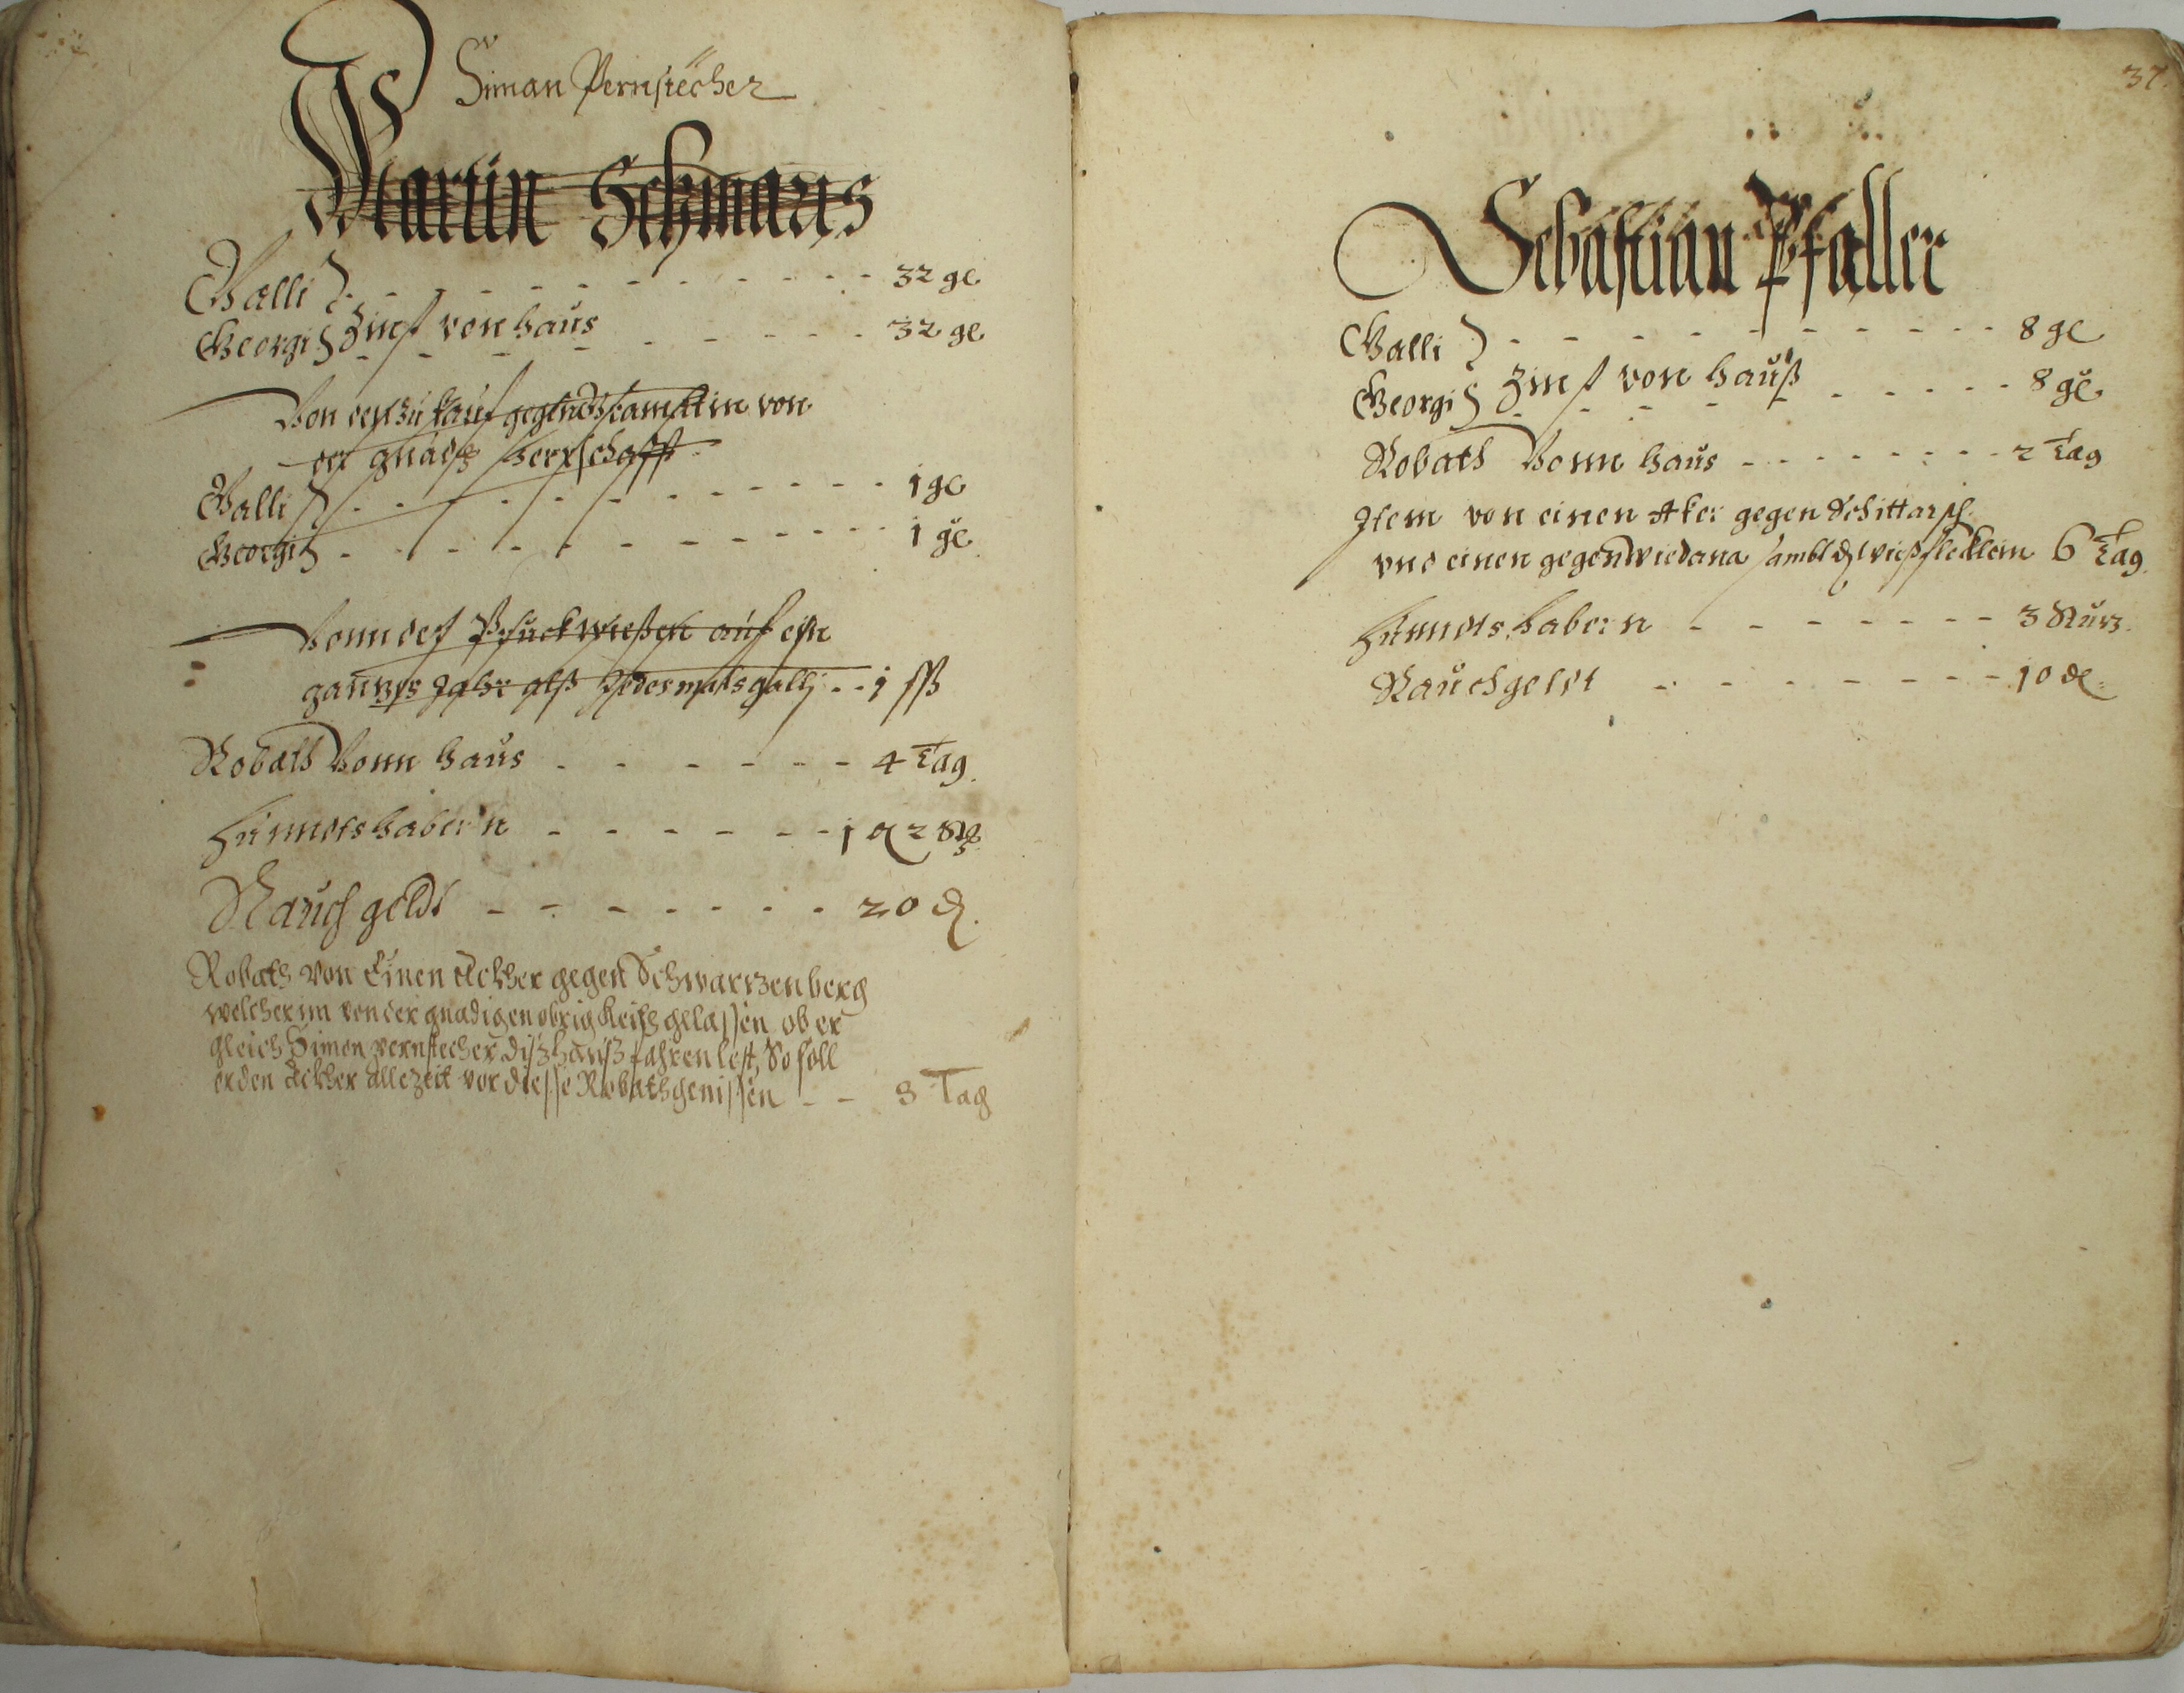 Siman Pernstecher
Martin Schmaus
Galli - - - - - - - - - - 32 gl
Zinß von haus
Georgi - - - - - - - - 32 gl
Von den zu kauf von
der gnädig herrschafft
Galli - - - - - - - - - - 1 gl
Georgi - - - - - - - - - - 1 gl
Vonn der auf ein
ganzes Jahr alß Jedesmals galli - - 1 ßß
Robath Vonn haus - - - - - - 4 Tag.
habern - - - - - - 1 2
Rauch geldt - - - - - - - 20 d.
Robath von Einen Ackher gegen Schwartzenberg
welcher im von der gnadigen obrigkeith gelassen ob er
gleich Simon pernstecher diß hauß fahren lest, So soll
er den Ackher allezeit vor diesse Robath genissen - - 3 Tag
37.
Sebastian Pfaller
Galli - - - - - - - - - - 8 gl
Zinß von hauß
Georgi - - - - - - - - - - 8 gl.
Robath Vonn haus - - - - - - - - 2 Tag
Item von einen Aker gegen Schittarsch
vnd einen gegen wiedana sambt d wießflecklein 6 Tag.
habern - - - - - - - 3
Rauchgeldt - - - - - - - 10 d.